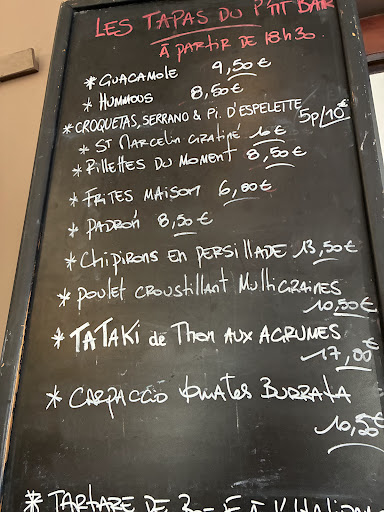 LES TAPAS DU P'TIT BAR
À PARTIR DE 18h30
* GUACAMOLE 9,50€
* HUMMOUS 8,50€
* CROQUETAS, SERRANO & Pi. D'ESPELETTE 5p/10€
* ST MARCELIN GRATINÉ 10€
* Rillettes DU MOMENT 8,50€
* FRITES MAISON 6,00€
* PADRON 8,50€
* Chipirons EN PERSILLADE 13,50€
* Poulet CROUSTILLANT MultiGRAINES
10,50€
* TATAKI de Thon AUX AGRUMES
17,00€
* CARPACCIO tomates BURRATA
10,50€
* TARTARE DE